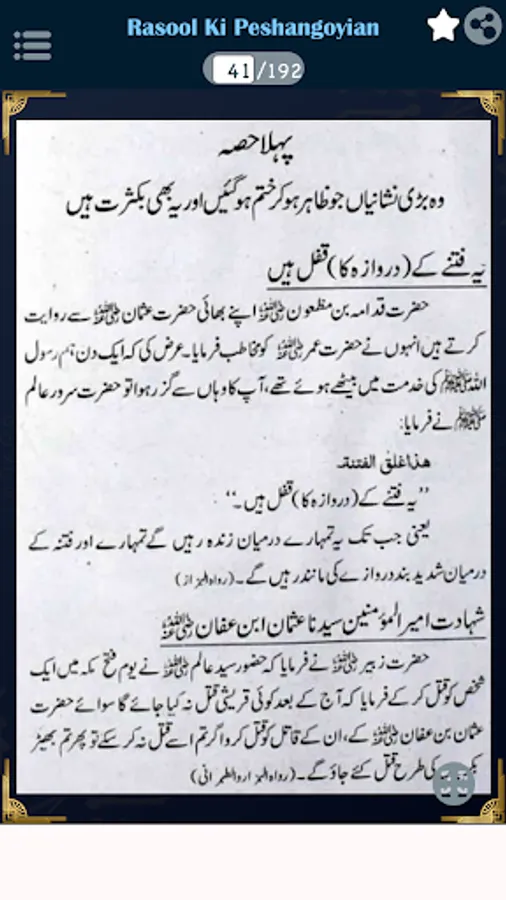 Rasool Ki Peshangoyian
41/192
پہلا حصہ
وہ بڑی نشانیاں جو ظاہر ہو کر ختم ہو گئیں اور یہ بھی بکثرت ہیں
یہ فتنے کے (دروازہ کا) قفل ہیں
حضرت قدامہ بن مظعون رضی اللہ عنہ اپنے بھائی حضرت عثمان رضی اللہ عنہ سے روایت
کرتے ہیں انہوں نے حضرت عمر رضی اللہ عنہ کو مخاطب فرمایا۔ عرض کی کہ ایک دن ہم رسول
اللہ ﷺ کی خدمت میں بیٹھے ہوئے تھے، آپ کا وہاں سے گزر ہوا تو حضرت سرور عالم
ﷺ نے فرمایا:
ھذا غلق الفتنۃ۔
”یہ فتنے کے (دروازہ کا) قفل ہیں۔“
یعنی جب تک یہ تمہارے درمیان زندہ رہیں گے تمہارے اور فتنہ کے
درمیان شدید بند دروازے کی مانند رہیں گے۔ (رواہ البزاز)
شہادت امیر المؤمنین سیدنا عثمان ابن عفان رضی اللہ عنہ
حضرت زبیر رضی اللہ عنہ نے فرمایا کہ حضور سید عالم ﷺ نے یوم فتح مکہ میں ایک
شخص کو قتل کر کے فرمایا کہ آج کے بعد کوئی قریشی قتل نہ کیا جائے گا سوائے حضرت
عثمان بن عفان رضی اللہ عنہ کے، ان کے قاتل کو قتل کرو اگر تم اسے قتل نہ کر سکے تو پھر تم بھیڑ
کی طرح قتل کئے جاؤ گے۔ (رواہ البزار والطبرانی)